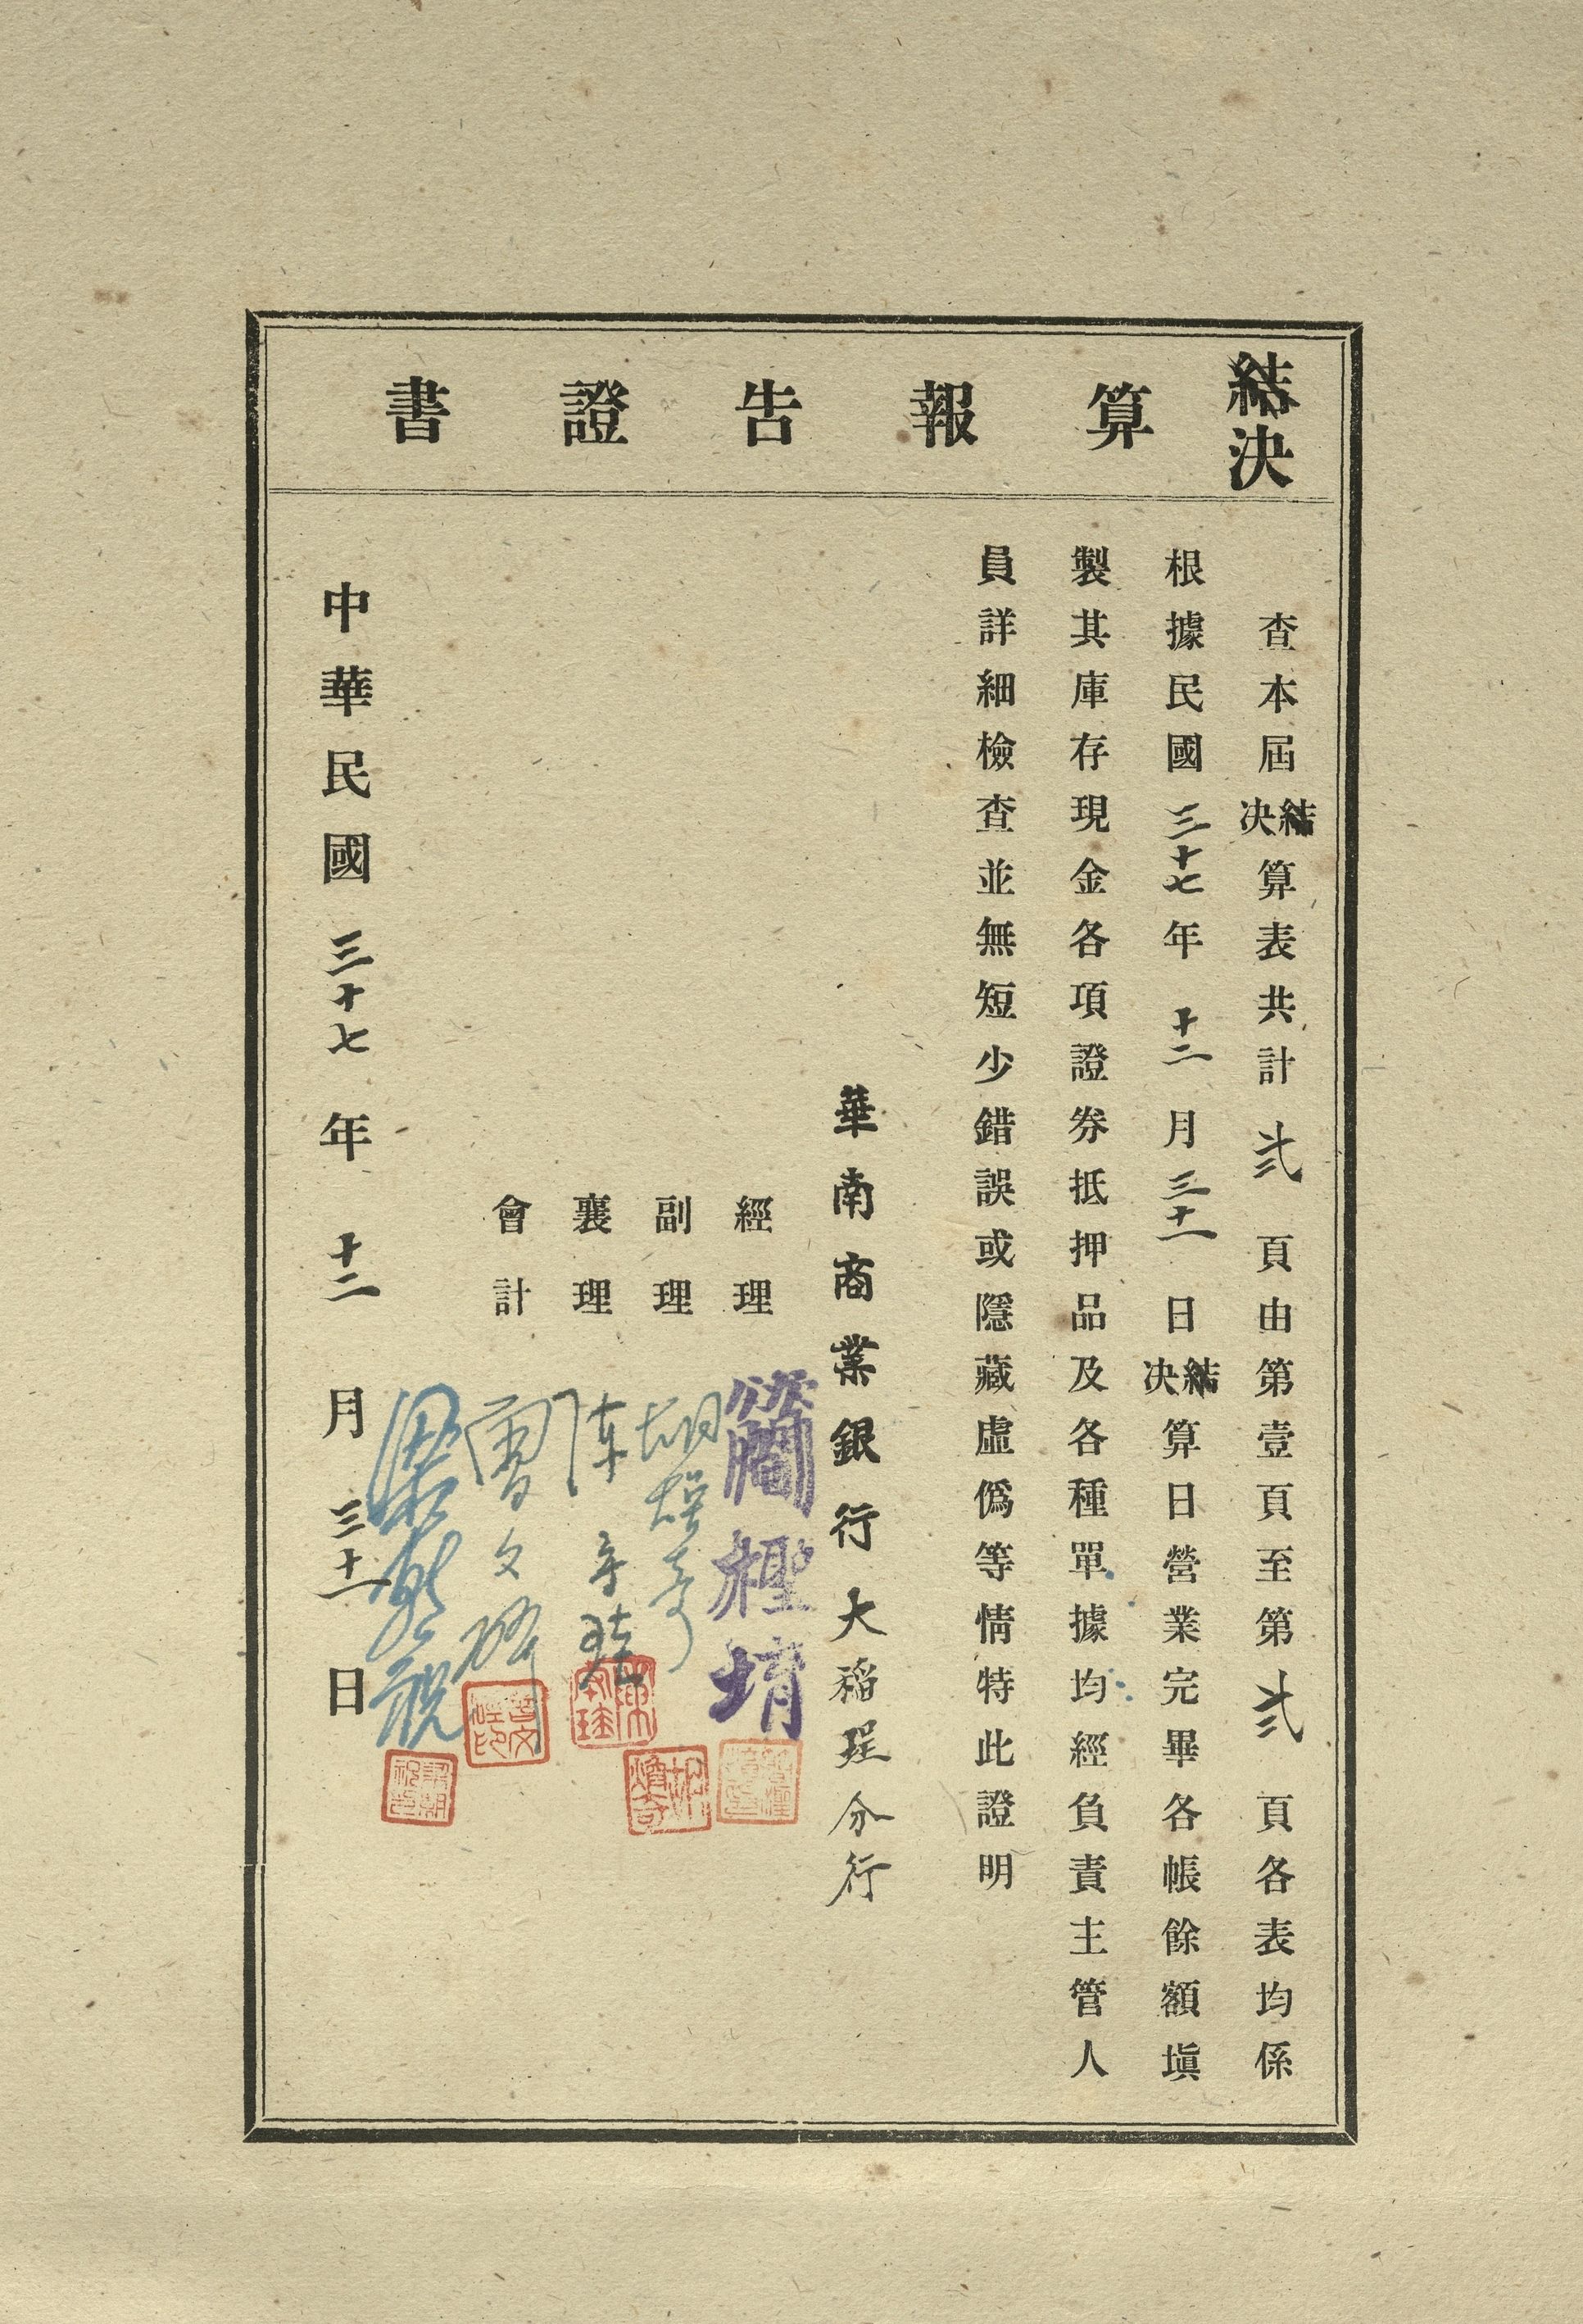 結決算報告證書
查本屆結決算表共計弍頁由第壹頁至第弍頁各表均係
根據民國三十七年十二月三十一日結決算日營業完畢各帳餘額塡
製其庫存現金各項證券抵押品及各種單據均經負責主管人
員詳細檢查並無短少錯誤或隱藏虛僞等情特此證明
華南商業銀行大稻埕分行
經理
副理
襄理 陈
會計 曾文
中華民國三十七年十二月三十一日